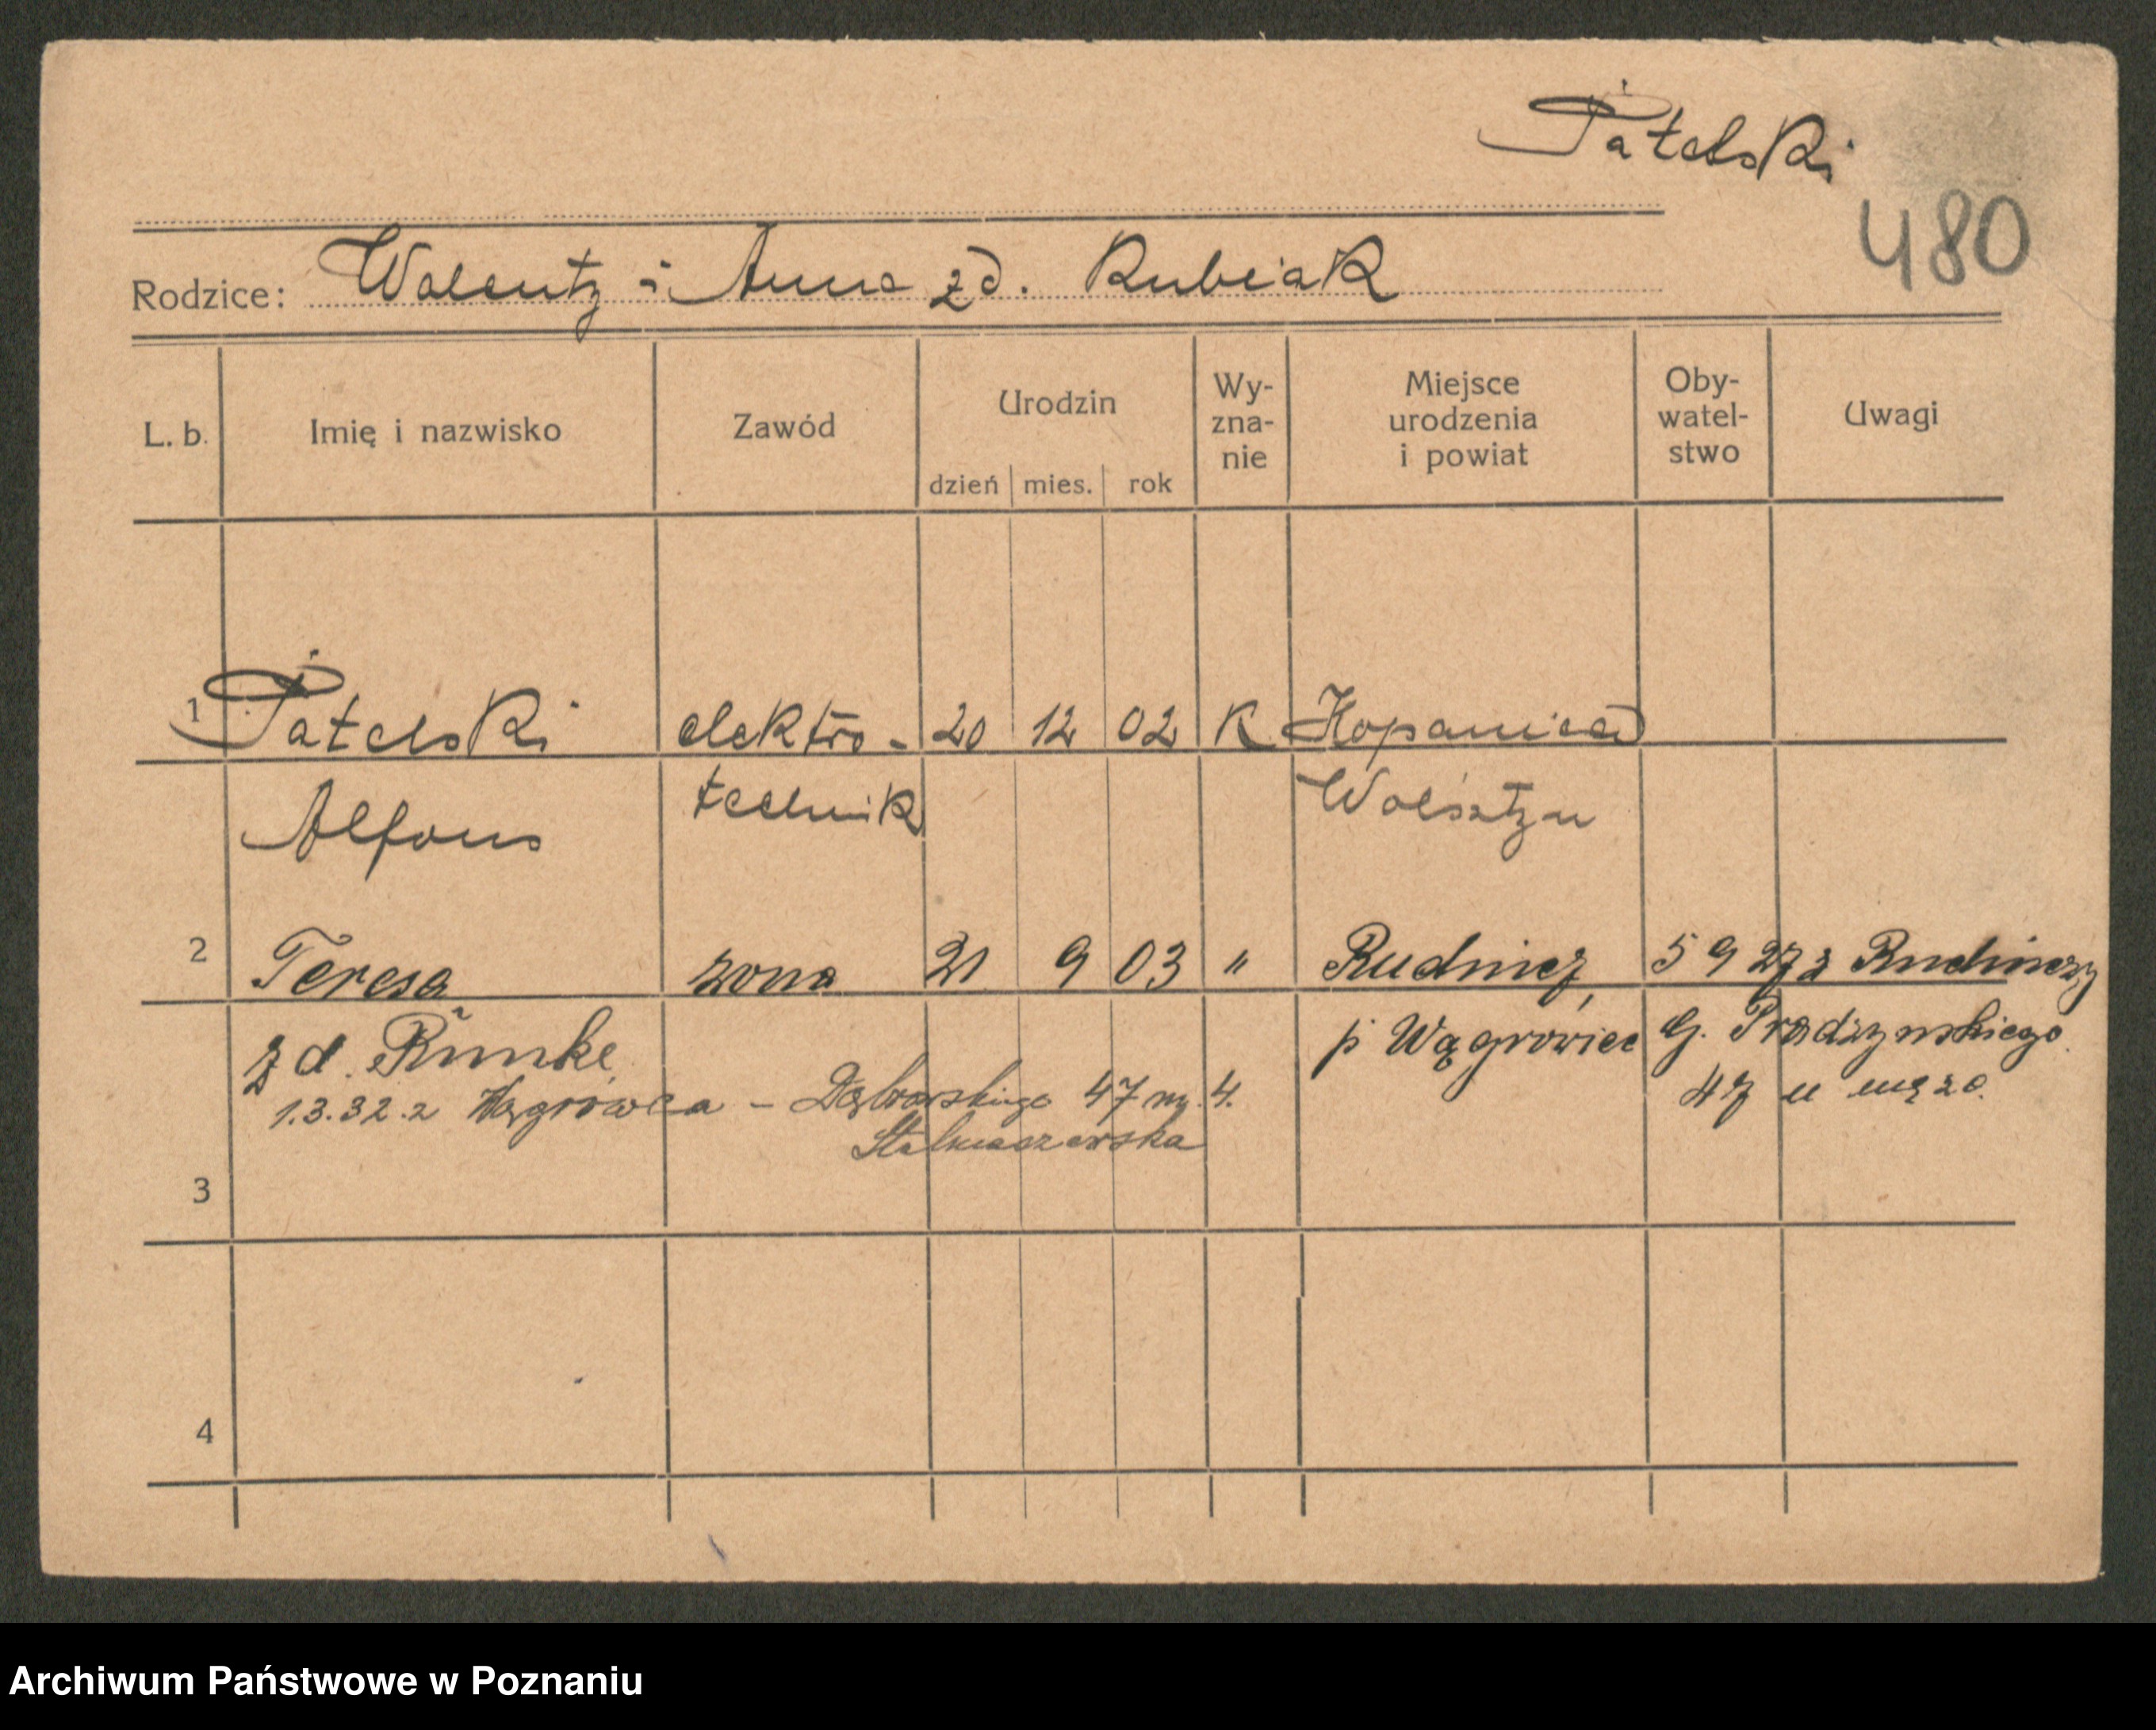 Patelski
480
Rodzice: Walenty i Anna zd. Kubiak
L. b. Imię i nazwisko Zawód Urodzin dzień mies. rok Wy-zna-nie Miejsce urodzenia i powiat Oby-watel-stwo Uwagi
1 Patelski elektro- 20 12 02 K Kopanica
Alfons technik Wolsztyn
2 Teresa żona 21 9 03 " Rudnicz, 5 9 27 z Rudniczy
zd. p Wągrowiec G. Prądzyńskiego
1.3.32. z Wągrowca - Dąbrowskiego 47 m. 4. 47 u męża.
3
4
Archiwum Państwowe w Poznaniu